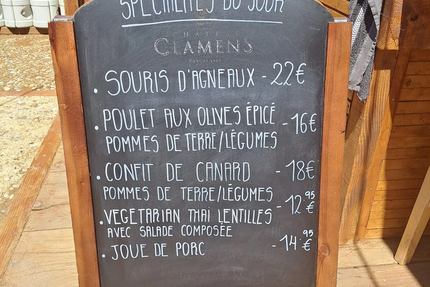 SPÉCIALITÉS DU JOUR
CLAMENS
• SOURIS D'AGNEAUX - 22€
• POULET AUX OLIVES ÉPICÉ - 16€
POMMES DE TERRE/LÉGUMES
• CONFIT DE CANARD - 18€
POMMES DE TERRE/LÉGUMES
• VEGETARIAN THAI LENTILLES - 12,95€
AVEC SALADE COMPOSÉE
• JOUE DE PORC - 14,95€